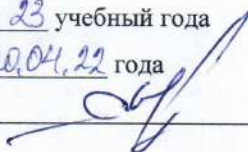 23 учебный года
0.04.22 года